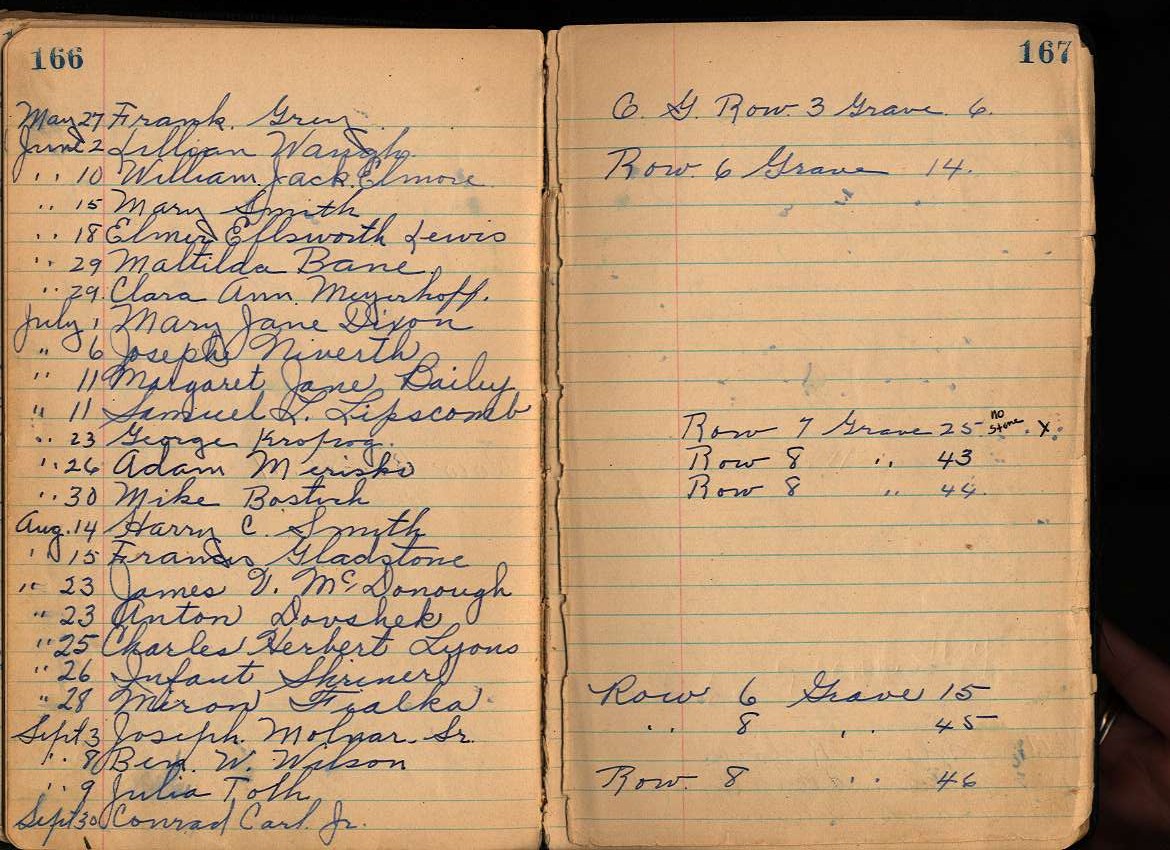 166
May 27 Frank. Grey
June 2 Lillian Waugh.
" 10 William Jack Elmore
" 15 Mary Smith
" 18 Elmer Ellsworth Lewis
" 29 Maltilda Bane.
" 29. Clara Ann. Meyerhoff.
July 1 Mary Jane Dixon
" 6 Joseph Niverth
" 11 Margaret Jane Bailey
" 11 Samuel L. Lipscomb
" 23 George Kropog.
" 26 Adam Meriski
" 30 Mike Bostich
Aug. 14 Harry C. Smyth
" 15 Francis Gladstone
" 23 James V. McDonough
" 23 Anton Dovshek
" 25 Charles Herbert Lyons
" 26 Infant Shriner
" 28 Miron Fialka
Sept 3 Joseph. Molnar. Sr.
" 8 Ben. W. Watson
" 9 Julia Toth
Sept 30 Conrad Carl. Jr.
167
C. G. Row. 3 Grave 6.
Row. 6 Grave 14.
Row 7 Grave 25 no stone. X
Row 8 " 43
Row 8 " 44.
Row 6 Grave 15
" 8 " 45
Row. 8 " 46